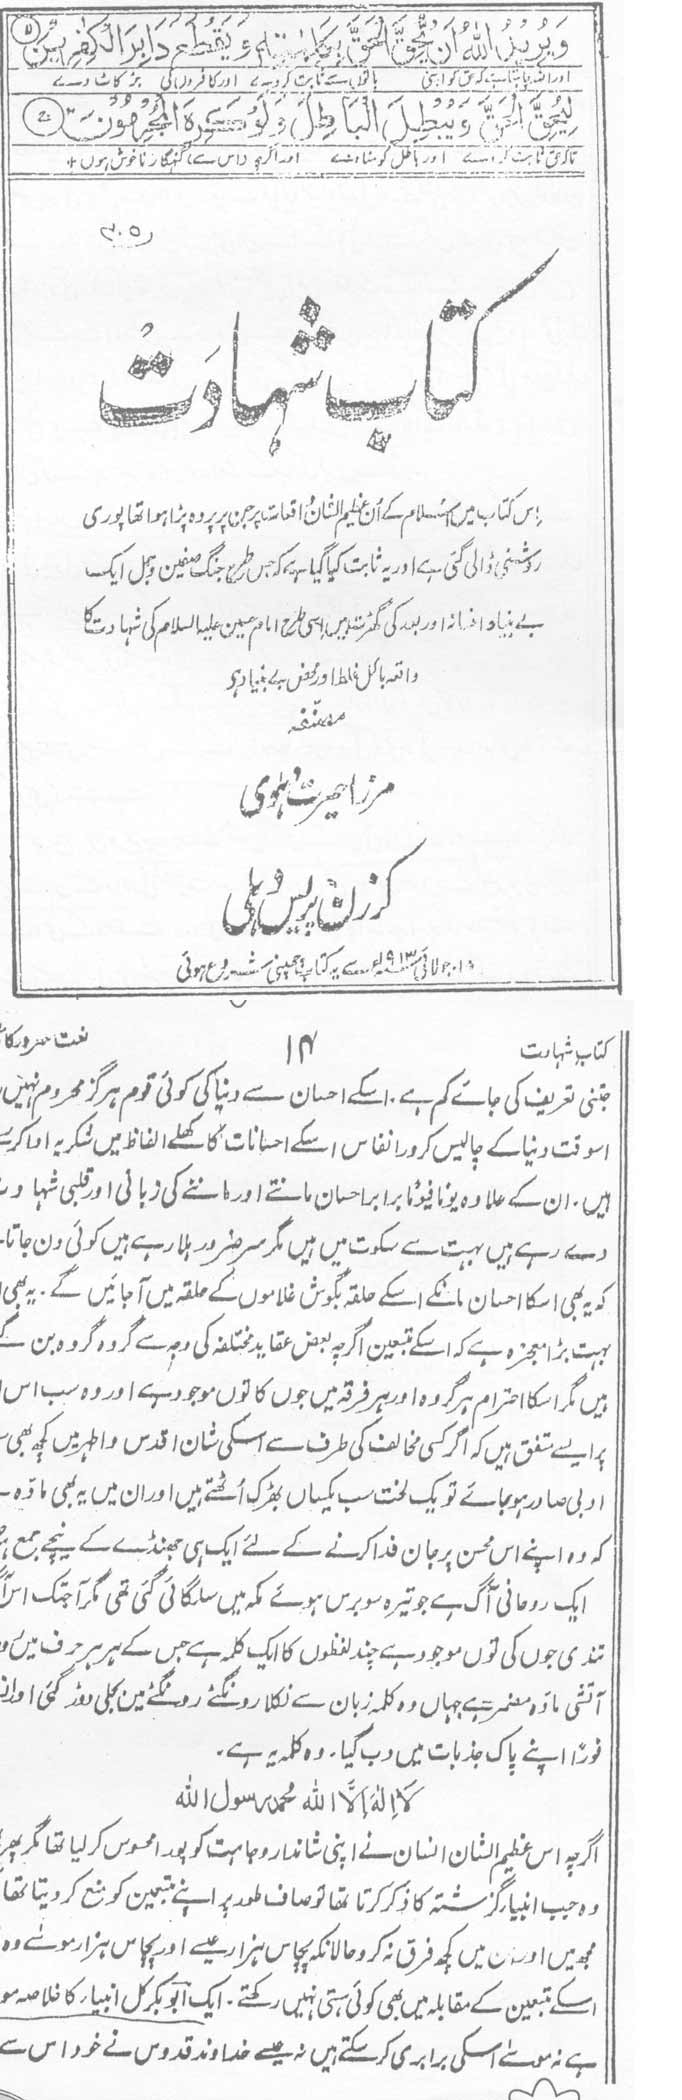 وَيُرِيدُ اللّٰهُ اَنْ يُّحِقَّ الْحَقَّ بِكَلِمٰتِهٖ وَيَقْطَعَ دَابِرَ الْكٰفِرِيْنَ
اور اللہ چاہتا ہے کہ حق کو اپنی باتوں سے ثابت کر دے اور کافروں کی جڑ کاٹ دے
لِيُحِقَّ الْحَقَّ وَيُبْطِلَ الْبَاطِلَ وَلَوْ كَرِهَ الْمُجْرِمُوْنَ
تاکہ حق ثابت کر دے اور باطل کو مٹا دے اور اگرچہ اس سے گنہگار ناخوش ہوں
کتاب شہادت
اِس کتاب میں اسلام کے اُن عظیم الشان واقعات پر جن پر پردہ پڑا ہوا تھا پوری
روشنی ڈالی گئی ہے اور یہ ثابت کیا گیا ہے کہ جس طرح جنگ صفین و جمل ایک
بے بنیاد افسانہ اور بعد کی گھڑت ہیں اسی طرح امام حسین علیہ السلام کی شہادت کا
واقعہ بالکل غلط اور محض بے بنیاد ہے
مصنفہ
مرزا حیرت دہلوی
کرزن پریس دہلی
جولائی ۱۹۱۳ء سے یہ کتاب چھپنی شروع ہوئی
کتاب شہادت
۱۴
نعت سرور کا
جتنی تعریف کی جائے کم ہے۔ اسکے احسان سے دنیا کی کوئی قوم ہرگز محروم نہیں
اسوقت دنیا کے چالیس کرور انفاس اسکے احسانات کا کھلے الفاظ میں شکریہ ادا کرتے
ہیں۔ ان کے علاوہ یوناً فیوناً برابر احسان مانتے اور ماننے کی زبانی اور قلبی شہادت
دے رہے ہیں بہت سے سکوت میں ہیں مگر سر ضرور ہلا رہے ہیں کوئی دن جاتا
کہ یہ بھی اسکا احسان مانکے اسکے حلقہ بگوش غلاموں کے حلقہ میں آجائیں گے۔ یہ بھی
بہت بڑا معجزہ ہے کہ اسکے متبعین اگرچہ بعض عقاید مختلفہ کی وجہ سے گروہ گروہ بن گئے
ہیں مگر اسکا احترام ہر گروہ اور ہر فرقہ میں جوں کا توں موجود ہے اور وہ سب اس
پر ایسے متفق ہیں کہ اگر کسی مخالف کی طرف سے اسکی شان اقدس و اطہر میں کچھ بھی
ادبی صادر ہو جائے تو یک لخت سب یکساں بھڑک اُٹھتے ہیں اور ان میں یہ بھی مادّہ
کہ وہ اپنے اس محسن پر جان فدا کرنے کے لئے ایک ہی جھنڈے کے نیچے جمع
ایک روحانی آگ ہے جو تیرہ سو برس ہوئے مکہ میں سلگائی گئی تھی مگر آجتک اس
تندی جوں کی توں موجود ہے چند لفظوں کا ایک کلمہ ہے جس کے ہر ہر حرف میں
آتشی مادّہ مضمر ہے جہاں وہ کلمہ زبان سے نکلا رونگٹے رونگٹے میں بجلی دوڑ گئی
فوراً اپنے پاک جذبات میں دب گیا۔ وہ کلمہ یہ ہے۔
لَا اِلٰهَ اِلَّا اللّٰه محمد رسول اللّٰه
اگرچہ اس عظیم الشان انسان نے اپنی شاندار وجاہت کو پورا محسوس کر لیا تھا مگر پھر
وہ جب انبیار گزشتہ کا ذکر کرتا تھا تو صاف طور پر اپنے متبعین کو منع کر دیتا تھا
مجھ میں اور ان میں کچھ فرق نہ کرو حالانکہ پچاس ہزار عیسے اور پچاس ہزار موسٰے وہ
اسکے متبعین کے مقابلہ میں بھی کوئی ہستی نہیں رکھتے۔ ایک ابوبکر کل انبیاء کا خلاصہ
ہے نہ موسٰے اسکی برابری کر سکتے ہیں نہ عیسے خداوند قدوس نے خود اس سے